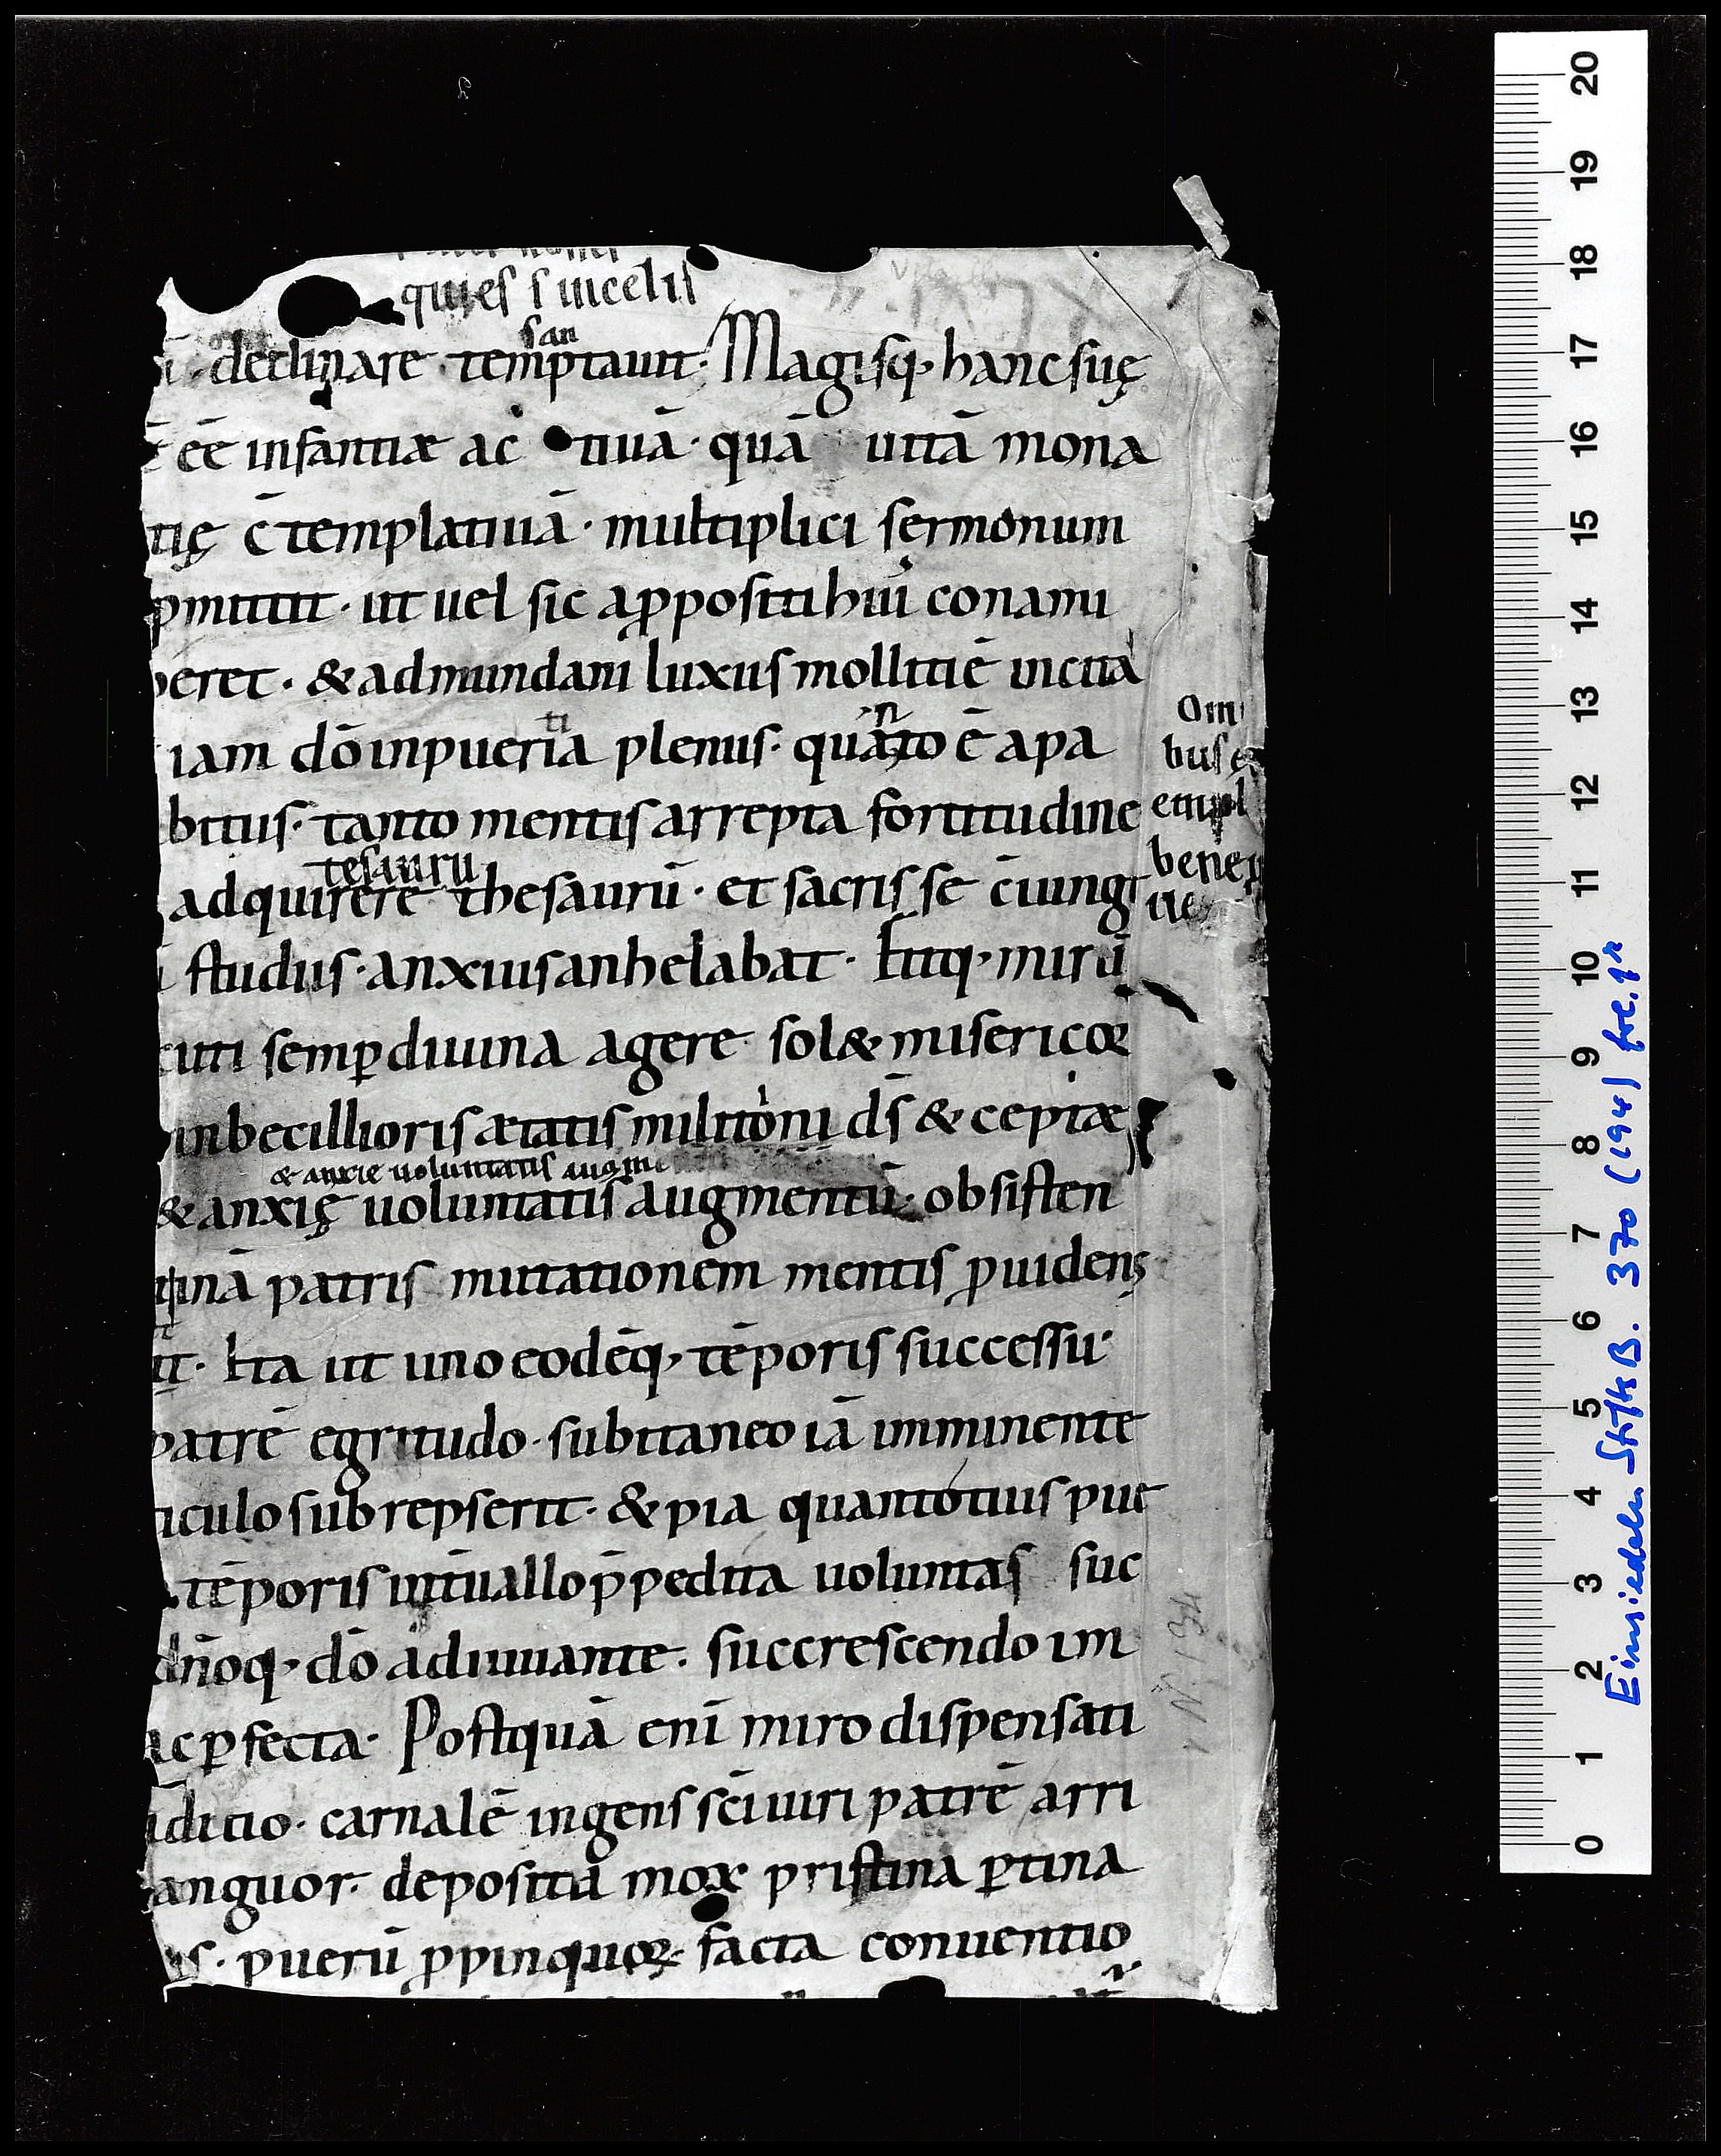 quies s incelis
san
declinare · temptauit · Magisq· hanc suę
ēē infantiæ ac tiuā · quā uitā mona
tię c̄templatiuā · multiplici sermonum
pmittit · ut uel sic appositi huic conami
eret · & ad mundani luxus mollitiē incita
ti n
iam dō in pueria plenus · quanto ē a pa
bitus · tanto mentis arrepta fortitudine
tesauru
adquirere thesaurū · et sacris se c̄iungi
studiis · anxius anhelabat · Fitq· mirū
uti semp diuina agere sol& misericor
inbecillioris ætatis militioni d̄s & ceptæ
& anxie uoluntatis augm
& anxię uoluntatis augmentū · obsisten
tinā patris mutationem mentis puidens
Ita ut uno eodēq· tēporis successu ·
patrē egritudo · subitaneo iā imminente
iculo subrepserit · & pia quanto tius pue
tēporis int̄uallo p̄pedita uoluntas suc
dn̄oq· dō adiuuante · succrescendo im
ac pfecta · Postquā enī miro dispensati
ditio · carnalē ingens sc̄i uiri patrē arri
anguor · deposita mox pristina ptina
puerū ppinquor· facta conuentio
Om
bus
empl
bene
ue
N. 194
Einsiedeln StiftsB. 370 (194) fol. 1r
20
19
18
17
16
15
14
13
12
11
10
9
8
7
6
5
4
3
2
1
0